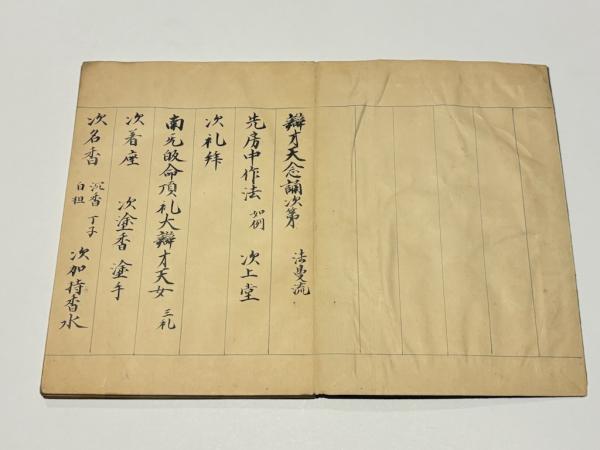 辨才天念誦次第 法曼流
先房中作法 如例 次上堂
次礼拜
南无皈命頂礼大辨才天女 三礼
次着座 次塗香 塗手
次名香 沉香 丁子 白檀 次加持香水